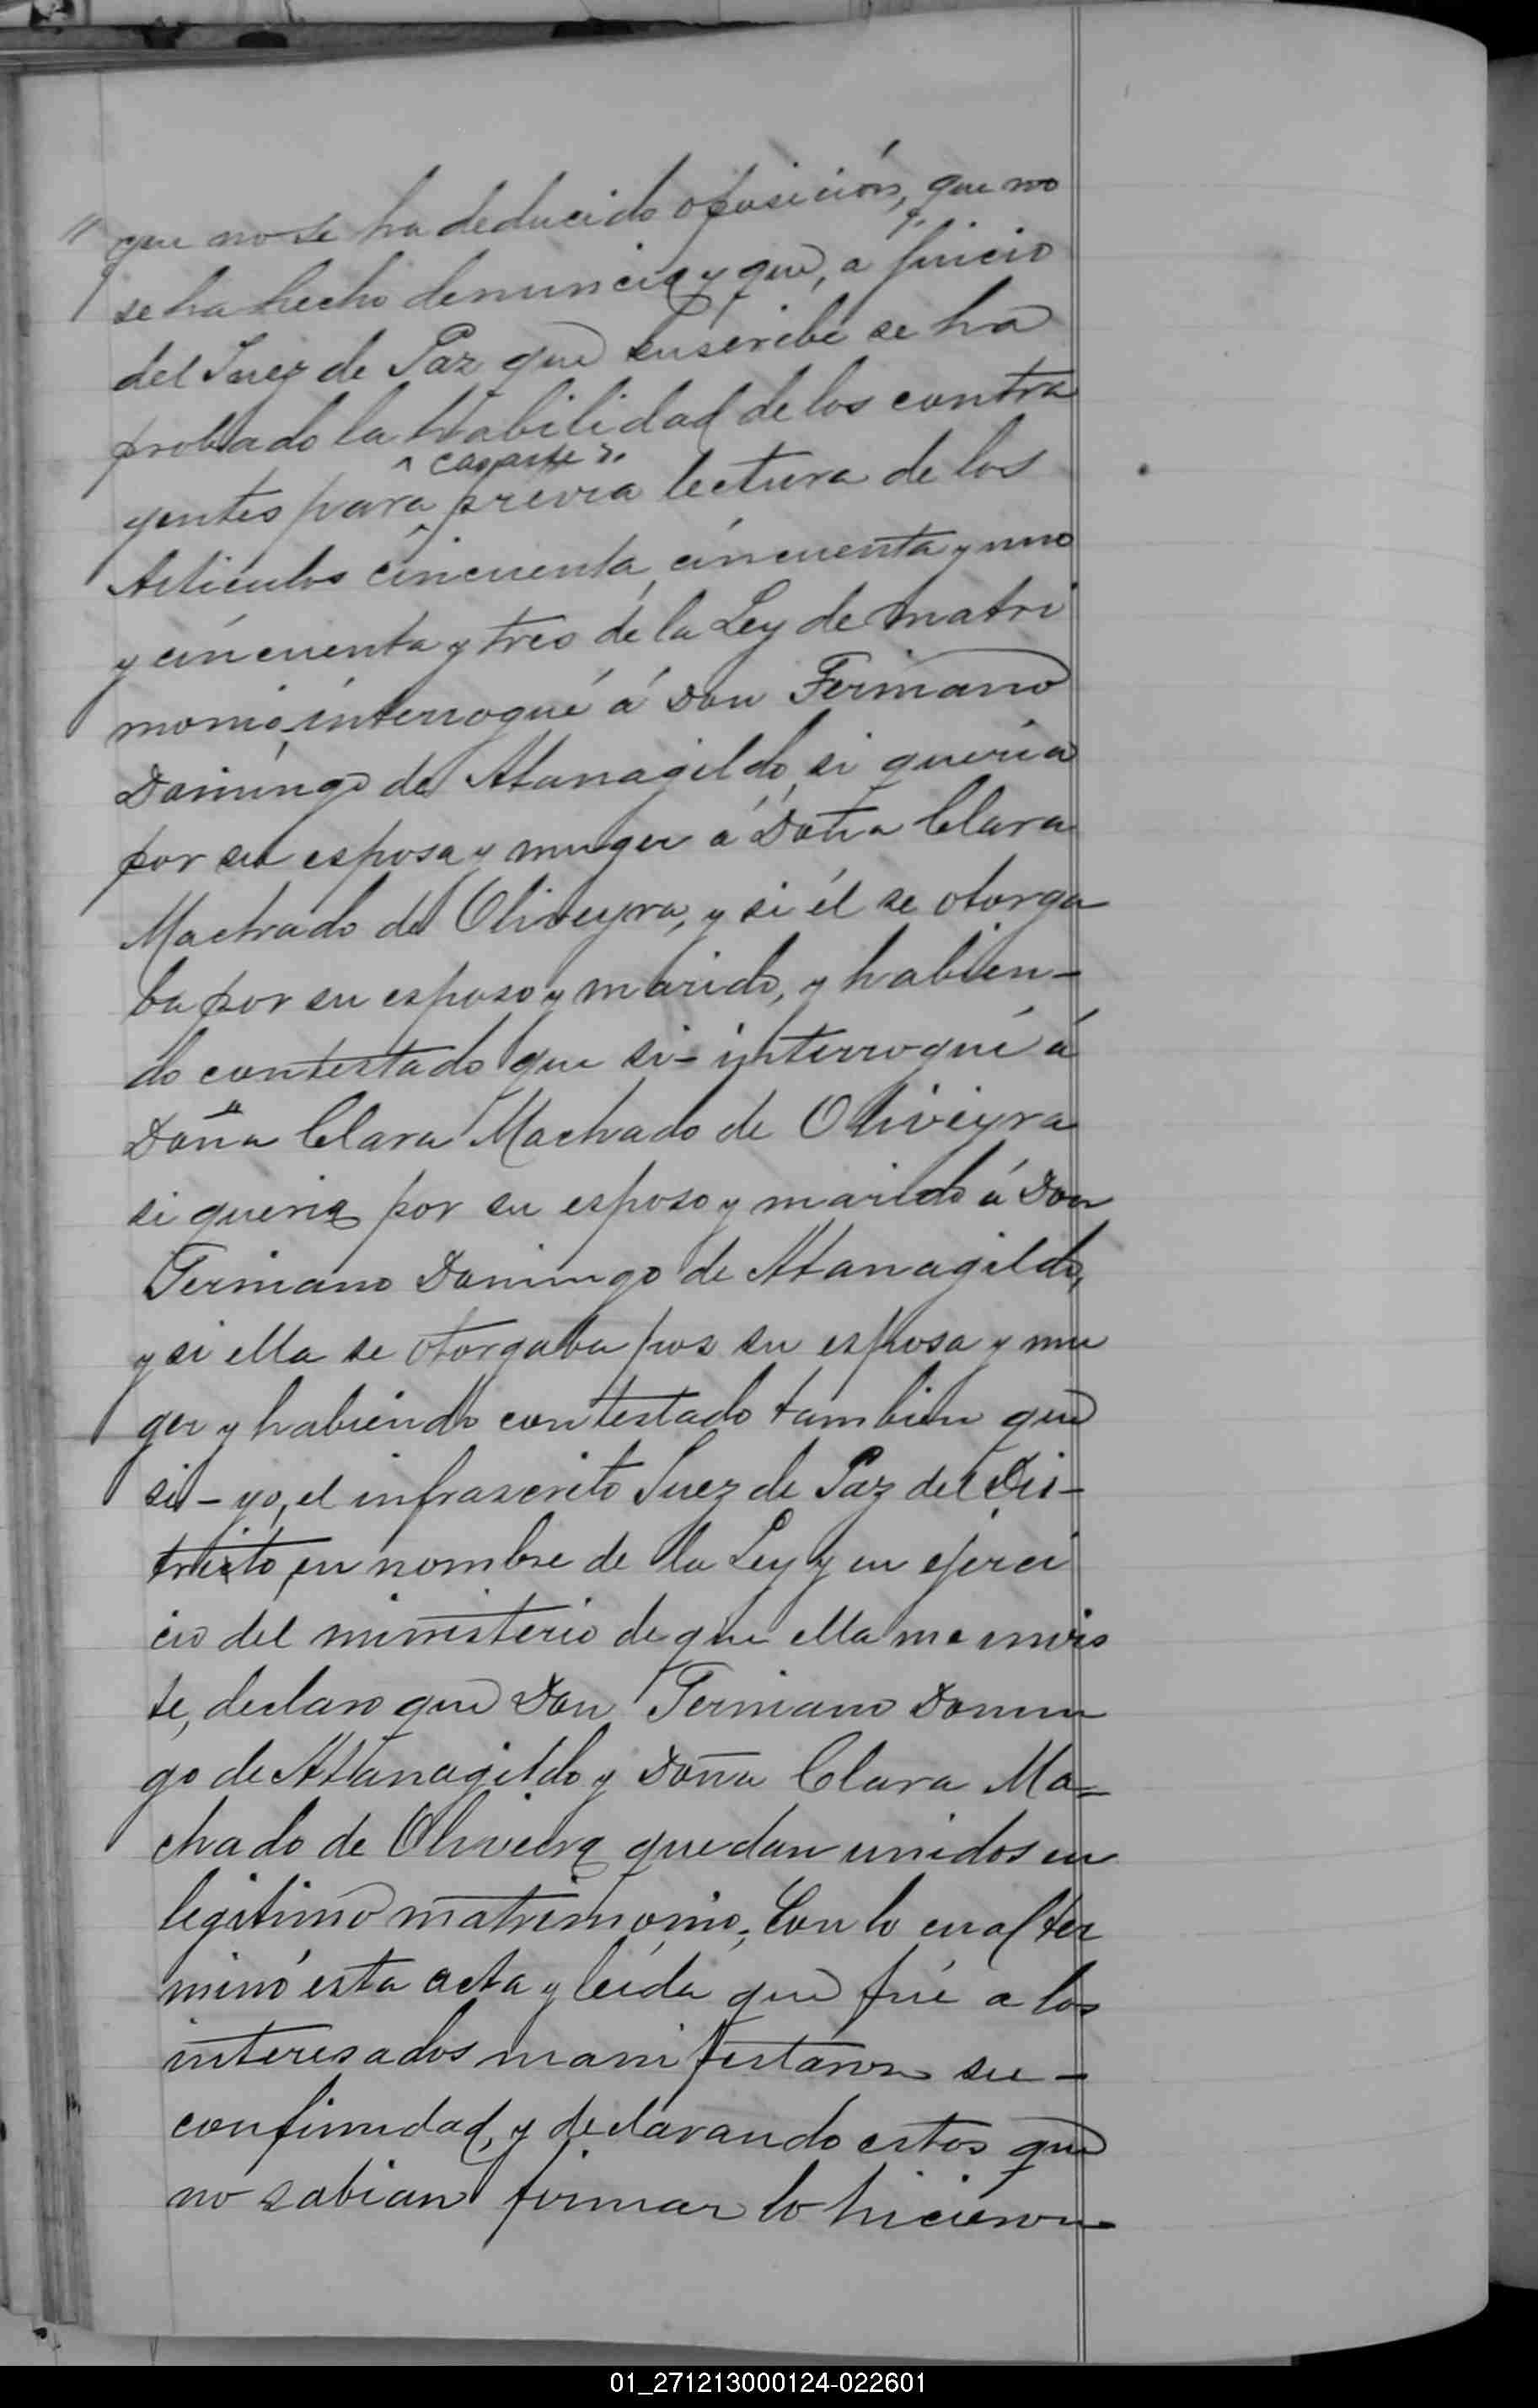 " que no se ha deducido oposición, que no
se ha hecho denuncia y que, a juicio
del Juez de Paz que suscribe se ha
probado la habilidad de los contra
^ casarse
yentes para previa lectura de los
Articulos cincuenta, cincuenta y uno
y cincuenta y tres de la Ley de Matri
monio, interrogué á Don Fermiano
Domingo de Atanagildo, si queria
por su esposa y muger á Doña Clara
Machado de Oliveyra, y si él se otorga
ba por su esposo y marido, y habien-
do contestado que si - interrogué á
Doña Clara Machado de Oliveyra
si queria por su esposo y marido á Don
Fermiano Domingo de Atanagildo,
y si ella se otorgaba por su esposa y mu
ger y habiendo contestado tambien que
si - yo, el infrascrito Juez de Paz del Dis-
trito, en nombre de la Ley y en ejerci
cio del ministerio de que ella me invis
te, declaro que Don Fermiano Domin
go de Atanagildo y Doña Clara Ma=
chado de Oliveira quedan unidos en
legitimo matrimonio; Con lo cual ter
minó esta acta y leída que fué a los
interesados manifestaron su -
confimidad, y declarando estos que
no sabian firmar lo hicieron
01_271213000124-022601